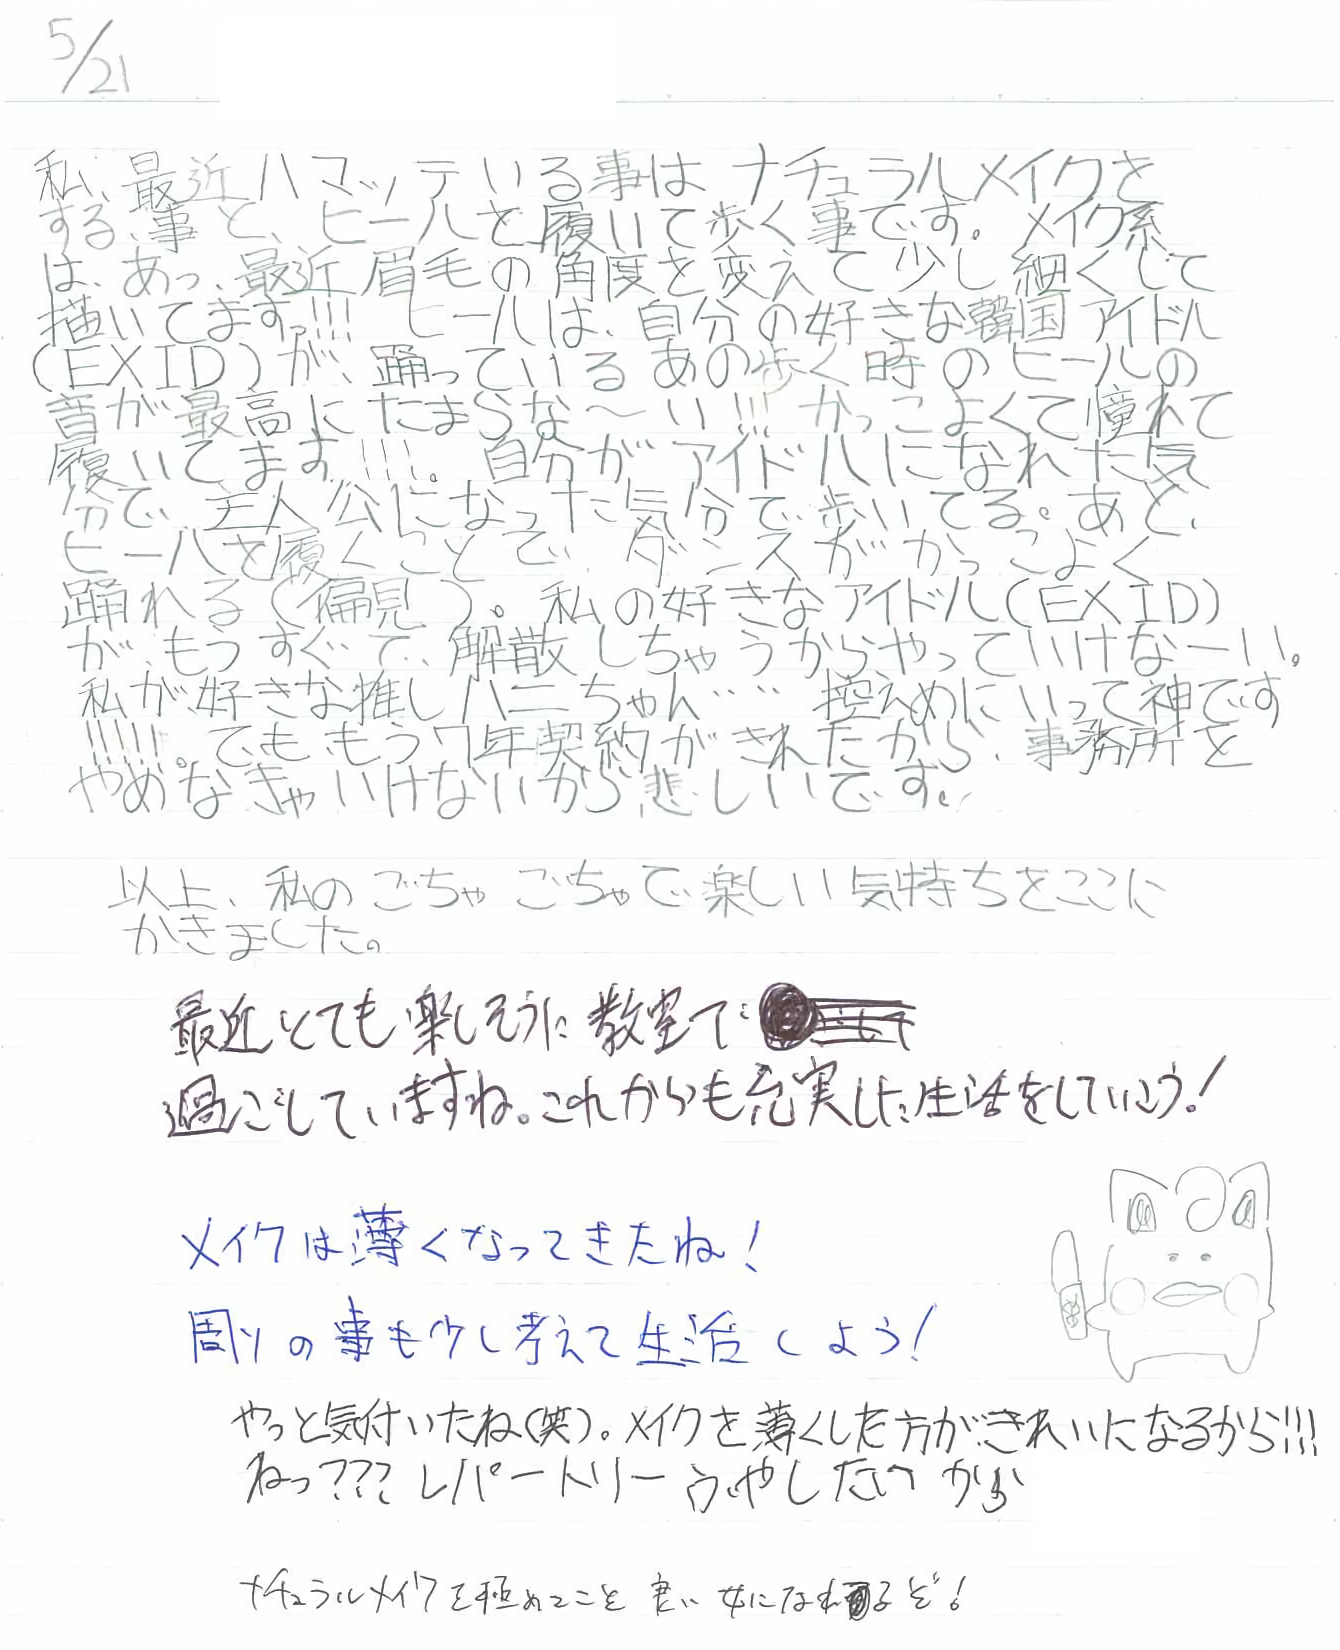 5/21
私、最近ハマッテいる事はナチュラルメイクを
する、事と、ヒールを履いて歩く事です。メイク系
は、あっ、最近眉毛の角度を変えて少し細くして
描いてますっ!!! ヒールは、自分の好きな韓国アイドル
(EXID)が、踊っているあの歩く時のヒールの
音が最高にたまらな～い!!! かっこよくて憧れて
履いてます!!!。自分がアイドルになれた気
分で、主人公になった気分で歩いてる。あと、
ヒールを履くことでダンスがかっこよく
踊れる(偏見)。私の好きなアイドル(EXID)
が、もうすぐで、解散しちゃうからやっていけなーい。
私が好きな推しハニちゃん…… 控えめにいって神です
!!!!!。でも、もう7年契約がきれたから、事務所を
やめなきゃいけないから悲しいです。
以上、私のごちゃごちゃで楽しい気持ちをここに
かきました。
最近とても楽しそうに教室で
過ごしていますね。これからも充実した生活をしていこう!
メイクは薄くなってきたね!
周りの事も少し考えて生活しよう!
やっと気付いたね(笑)。メイクを薄くした方がきれいになるから!!!
ねっ??? レパートリーふやしたいから
ナチュラルメイクを極めてこそ良い女になれるぞ!